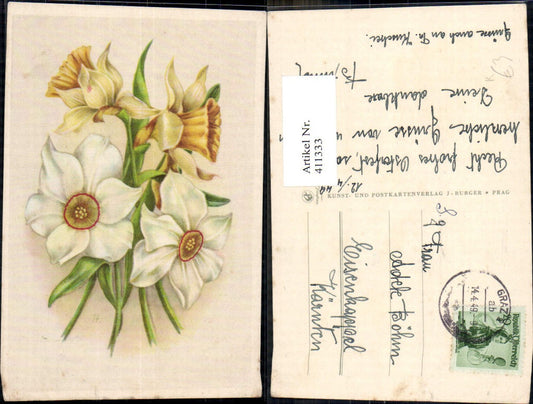 Artikel Nr.
411333
12.4.49
Recht frohe Osterfest, so
herzliche Grüsse von
Deine dankbare
Grüsse auch an Fr.
KUNST- UND POSTKARTENVERLAG J. BURGER * PRAG
Frau
Adele Böhm
Eisenkappel
Kärnten
GRAZ
ab
14.4.49
Republik Österreich